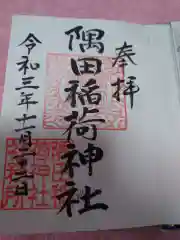 奉拝
隅田稲荷神社
令和三年十一月二十三日